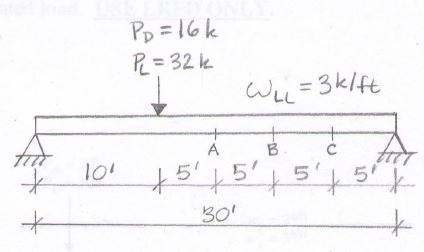 USE LRFD ONLY.
P_D = 16k
P_L = 32k
ω_LL = 3k/ft
A B C
10' 5' 5' 5' 5'
30'